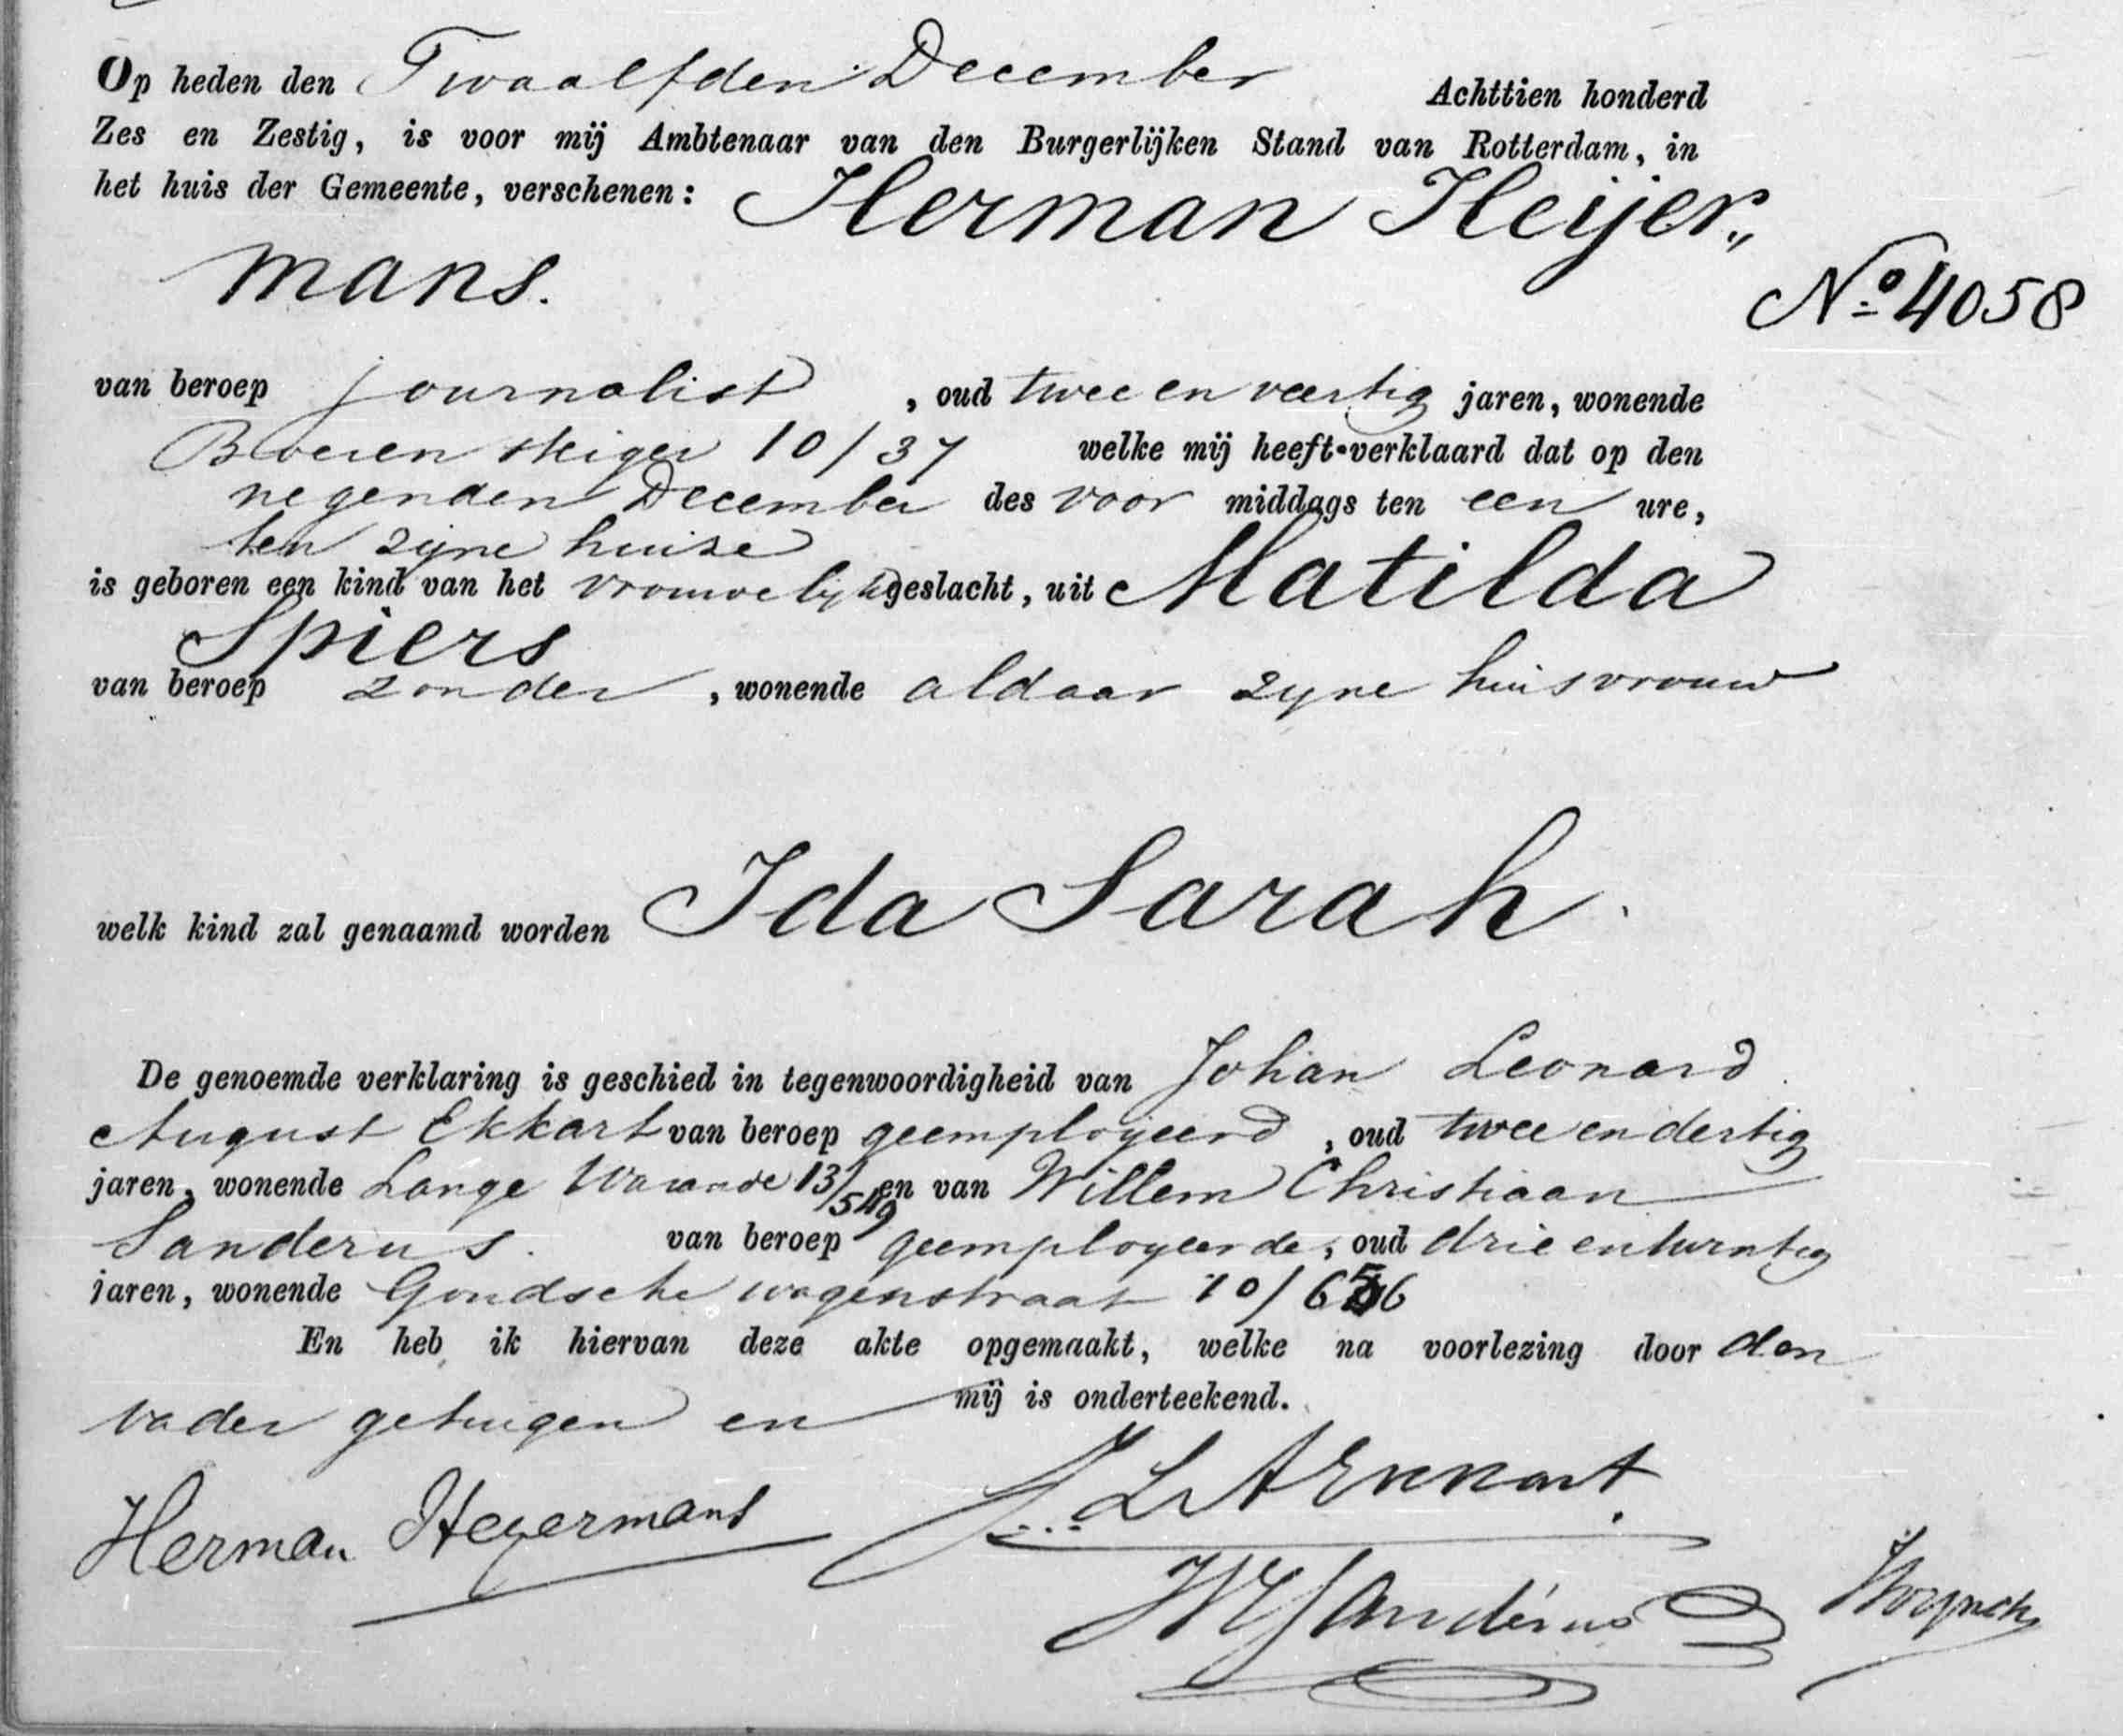 Op heden den Twaalfden December Achttien honderd
Zes en Zestig, is voor mij Ambtenaar van den Burgerlijken Stand van Rotterdam, in
het huis der Gemeente, verschenen: Herman Heijer„
mans.
No 4058
van beroep journalist, oud twee en veertig jaren, wonende
Boerensteiger 10/37 welke mij heeft verklaard dat op den
negenden December des voor middags ten een ure,
ten zijne huize
is geboren een kind van het vrouwelijk geslacht, uit Matilda
Spiers
van beroep zonder, wonende aldaar zyne huisvrouw
welk kind zal genaamd worden Ida Sarah.
De genoemde verklaring is geschied in tegenwoordigheid van Johan Leonard
August Ekkart van beroep geemployeerd, oud twee en dertig
jaren, wonende Lange Warande 13/549 en van Willem Christiaan
Sanderus. van beroep geemployeerde, oud drie en twintig
jaren, wonende Goudsche wagenstraat 10/656
En heb ik hiervan deze akte opgemaakt, welke na voorlezing door den
vader getuigen en mij is onderteekend.
Herman Heyermans
J L A Ekkart.
WCSanderus